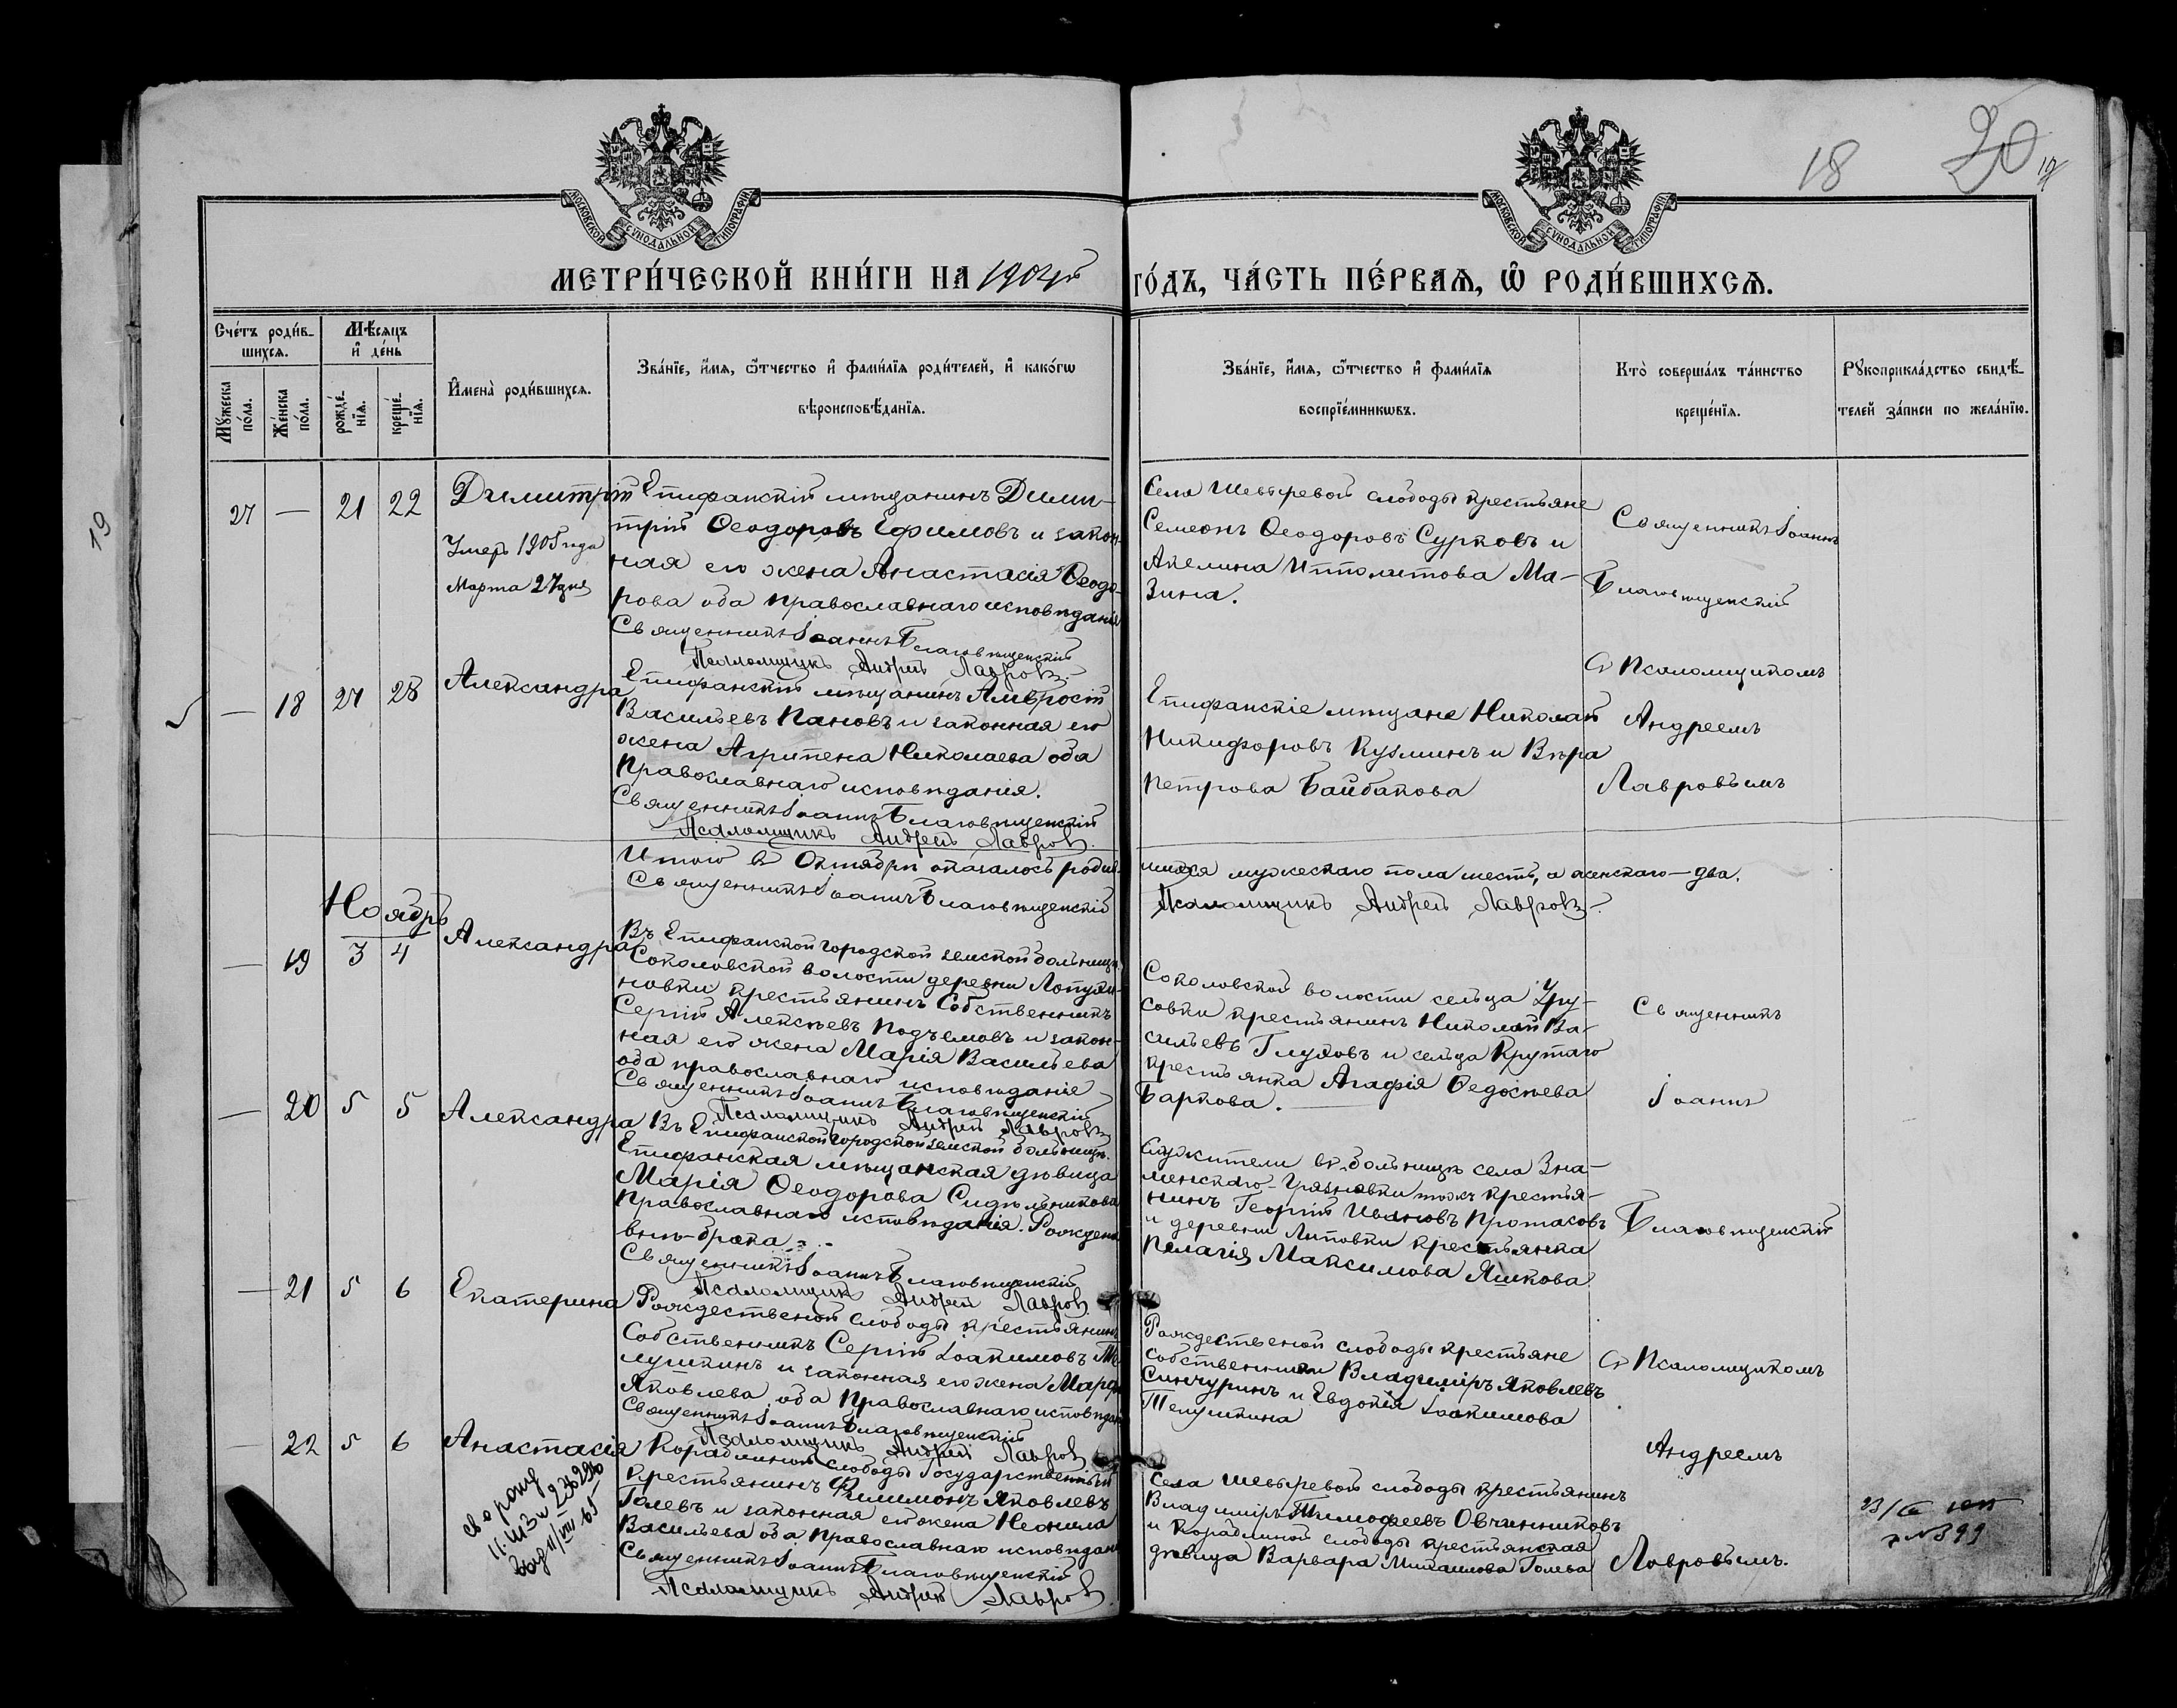 18
20
19
19
МОСКОВСКОЙ СѴНОДАЛЬНОЙ ТИПОГРАФІИ
МОСКОВСКОЙ СѴНОДАЛЬНОЙ ТИПОГРАФІИ
МЕТРИ́ЧЕСКОЙ КНИ́ГИ НА 1904й ГО́ДЪ, ЧА́СТЬ ПЕ́РВАѦ, Ѡ҆ РОДИ́ВШИХСѦ.
Сче́тъ роди́в-
шихсѧ.
Мѣ́сѧцъ
и҆ де́нь
Мꙋ́жеска
по́ла.
Же́нска
по́ла.
рожде́-
нїѧ.
креще́-
нїѧ.
И҆мена̀ роди́вшихсѧ.
Зва́нїе, и҆́мѧ, ѻ҆́тчество и҆ фами́лїѧ роди́телей, и҆ како́гѡ
вѣроисповѣ́данїѧ.
Зва́нїе, и҆́мѧ, ѻ҆́тчество и҆ фами́лїѧ
воспрїе́мникѡвъ.
Кто̀ соверша́лъ та́инство
креще́нїѧ.
Рꙋкоприкла́дство свидѣ́-
телей за́писи по жела́нїю.
27 — 21 22 Димитрій
Умеръ 1905 года
Марта 27 дня
Епифанскій мѣщанинъ Дими-
трій Ѳеодоровъ Ефимовъ и закон-
ная его жена Анастасія Ѳеодо-
рова оба православнаго исповѣданія
Священникъ Іоаннъ Благовѣщенскій
Псаломщикъ Андрей Лавровъ
Села Шевыревой слободы крестьяне
Семеонъ Ѳеодоровъ Сурковъ и
Акелина Ипполитова Ма-
зина.
Священникъ Іоаннъ
Благовѣщенскій
Съ Псаломщикомъ
Андреемъ
Лавровымъ
— 18 27 28 Александра
Епифанскій мѣщанинъ Амвросій
Васильевъ Пановъ и законная его
жена Агрипена Николаева оба
Православнаго исповѣданія.
Священникъ Іоаннъ Благовѣщенскій
Псаломщикъ Андрей Лавровъ.
Епифанскіе мѣщане Николай
Никифоровъ Кузминъ и Вѣра
Петрова Байбакова
Итого въ Октябрѣ оказалось родив-
шихся мужескаго пола шесть, а женскаго — два.
Священникъ Іоаннъ Благовѣщенскій
Псаломщикъ Андрей Лавровъ.
Ноябрь
— 19 3 4 Александра
Въ Епифанской городской земской больницѣ
Соколовской волости деревни
крестьянинъ Собственникъ
Сергій Алексѣевъ Подъемовъ и закон-
ная его жена Марія Васильева
оба православнаго исповѣданіе
Священникъ Іоаннъ Благовѣщенскій
Псаломщикъ Андрей Лавровъ
Соколовской волости сельца Уру-
совки крестьянинъ Николай Ва-
сильевъ Глуховъ и сельца Крутаго
крестьянка Агафія Ѳедосѣева
Баркова.
Священникъ
Іоаннъ
Благовѣщенскій
Съ Псаломщикомъ
Андреемъ
Лавровымъ.
— 20 5 5 Александра
Въ Епифанской городской земской больницѣ.
Епифанская мѣщанская дѣвица
Марія Ѳеодорова Сидѣльникова
Православнаго исповѣданія. Рожден
внѣ-брака.
Священникъ Іоаннъ Благовѣщенскій
Псаломщикъ Андрей Лавровъ
Служители въ больницѣ села Зна-
менскаго-Грязновки тожъ крестья-
нинъ Георгій Ивановъ Протасовъ
и деревни Липовки крестьянка
Пелагія Максимова Яшкова
— 21 5 6 Екатерина
Рождественой слободы крестьянинъ
Собственникъ Сергій Іоакимовъ Те-
лушкинъ и законная его жена Марфа
Яковлева, оба Православнаго исповѣдан
Священникъ Іоаннъ Благовѣщенскій
Псаломщикъ Андрей Лавровъ
Рождественой слободы крестьяне
собственники Владиміръ Яковлевъ
Синчуринъ и Евдокія Іоакимова
Телушкина
— 22 5 6 Анастасія
Кораблиной слободы Государственный
Крестьянинъ Филимонъ Яковлевъ
Голевъ и законная его жена Неонила
Васильева оба Православнаго исповѣдан
Священникъ Іоаннъ Благовѣщенскій
Псаломщикъ Андрей Лавровъ.
Села Шевыревой слободы крестьянинъ
Владиміръ Тимофеевъ Овчинниковъ
и Кораблиной слободы крестьянская
дѣвица Варвара Михаилова Голева
св о рожд
11/VIII 65
№ 399